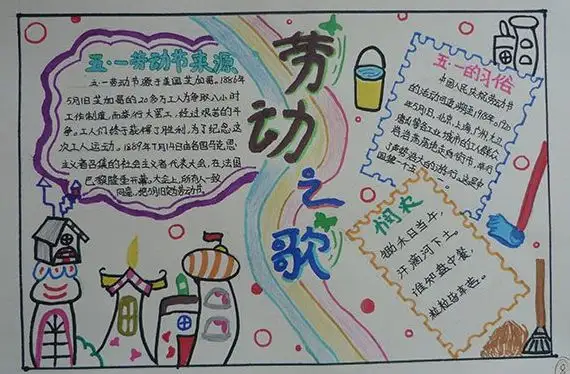 五·一劳动节来源
五一劳动节源于美国芝加哥。1886年
5月1日芝加哥的20多万工人为争取八小时
工作制度,而举行大罢工,经过艰苦的斗
争。工人们终于获得了胜利,为了纪念这
次工人运动。1889年7月14日由各国马克思
主义者召集的社会主义者代表大会,在法国
巴黎隆重开幕,大会上,所有人一致
同意,把5月1日定为劳动节。
劳动
之歌
五·一的习俗
中国人民庆祝劳动节
的活动可追溯至1918年。1920
年5月1日,北京,上海,广州,九江,
唐山等工业城市的工人群众
浩浩荡荡地走向街市,举行
了声势浩大的游行,这是中
国第一个五一
悯农
锄禾日当午,
汗滴河下土。
谁知盘中餐,
粒粒皆辛苦。
8